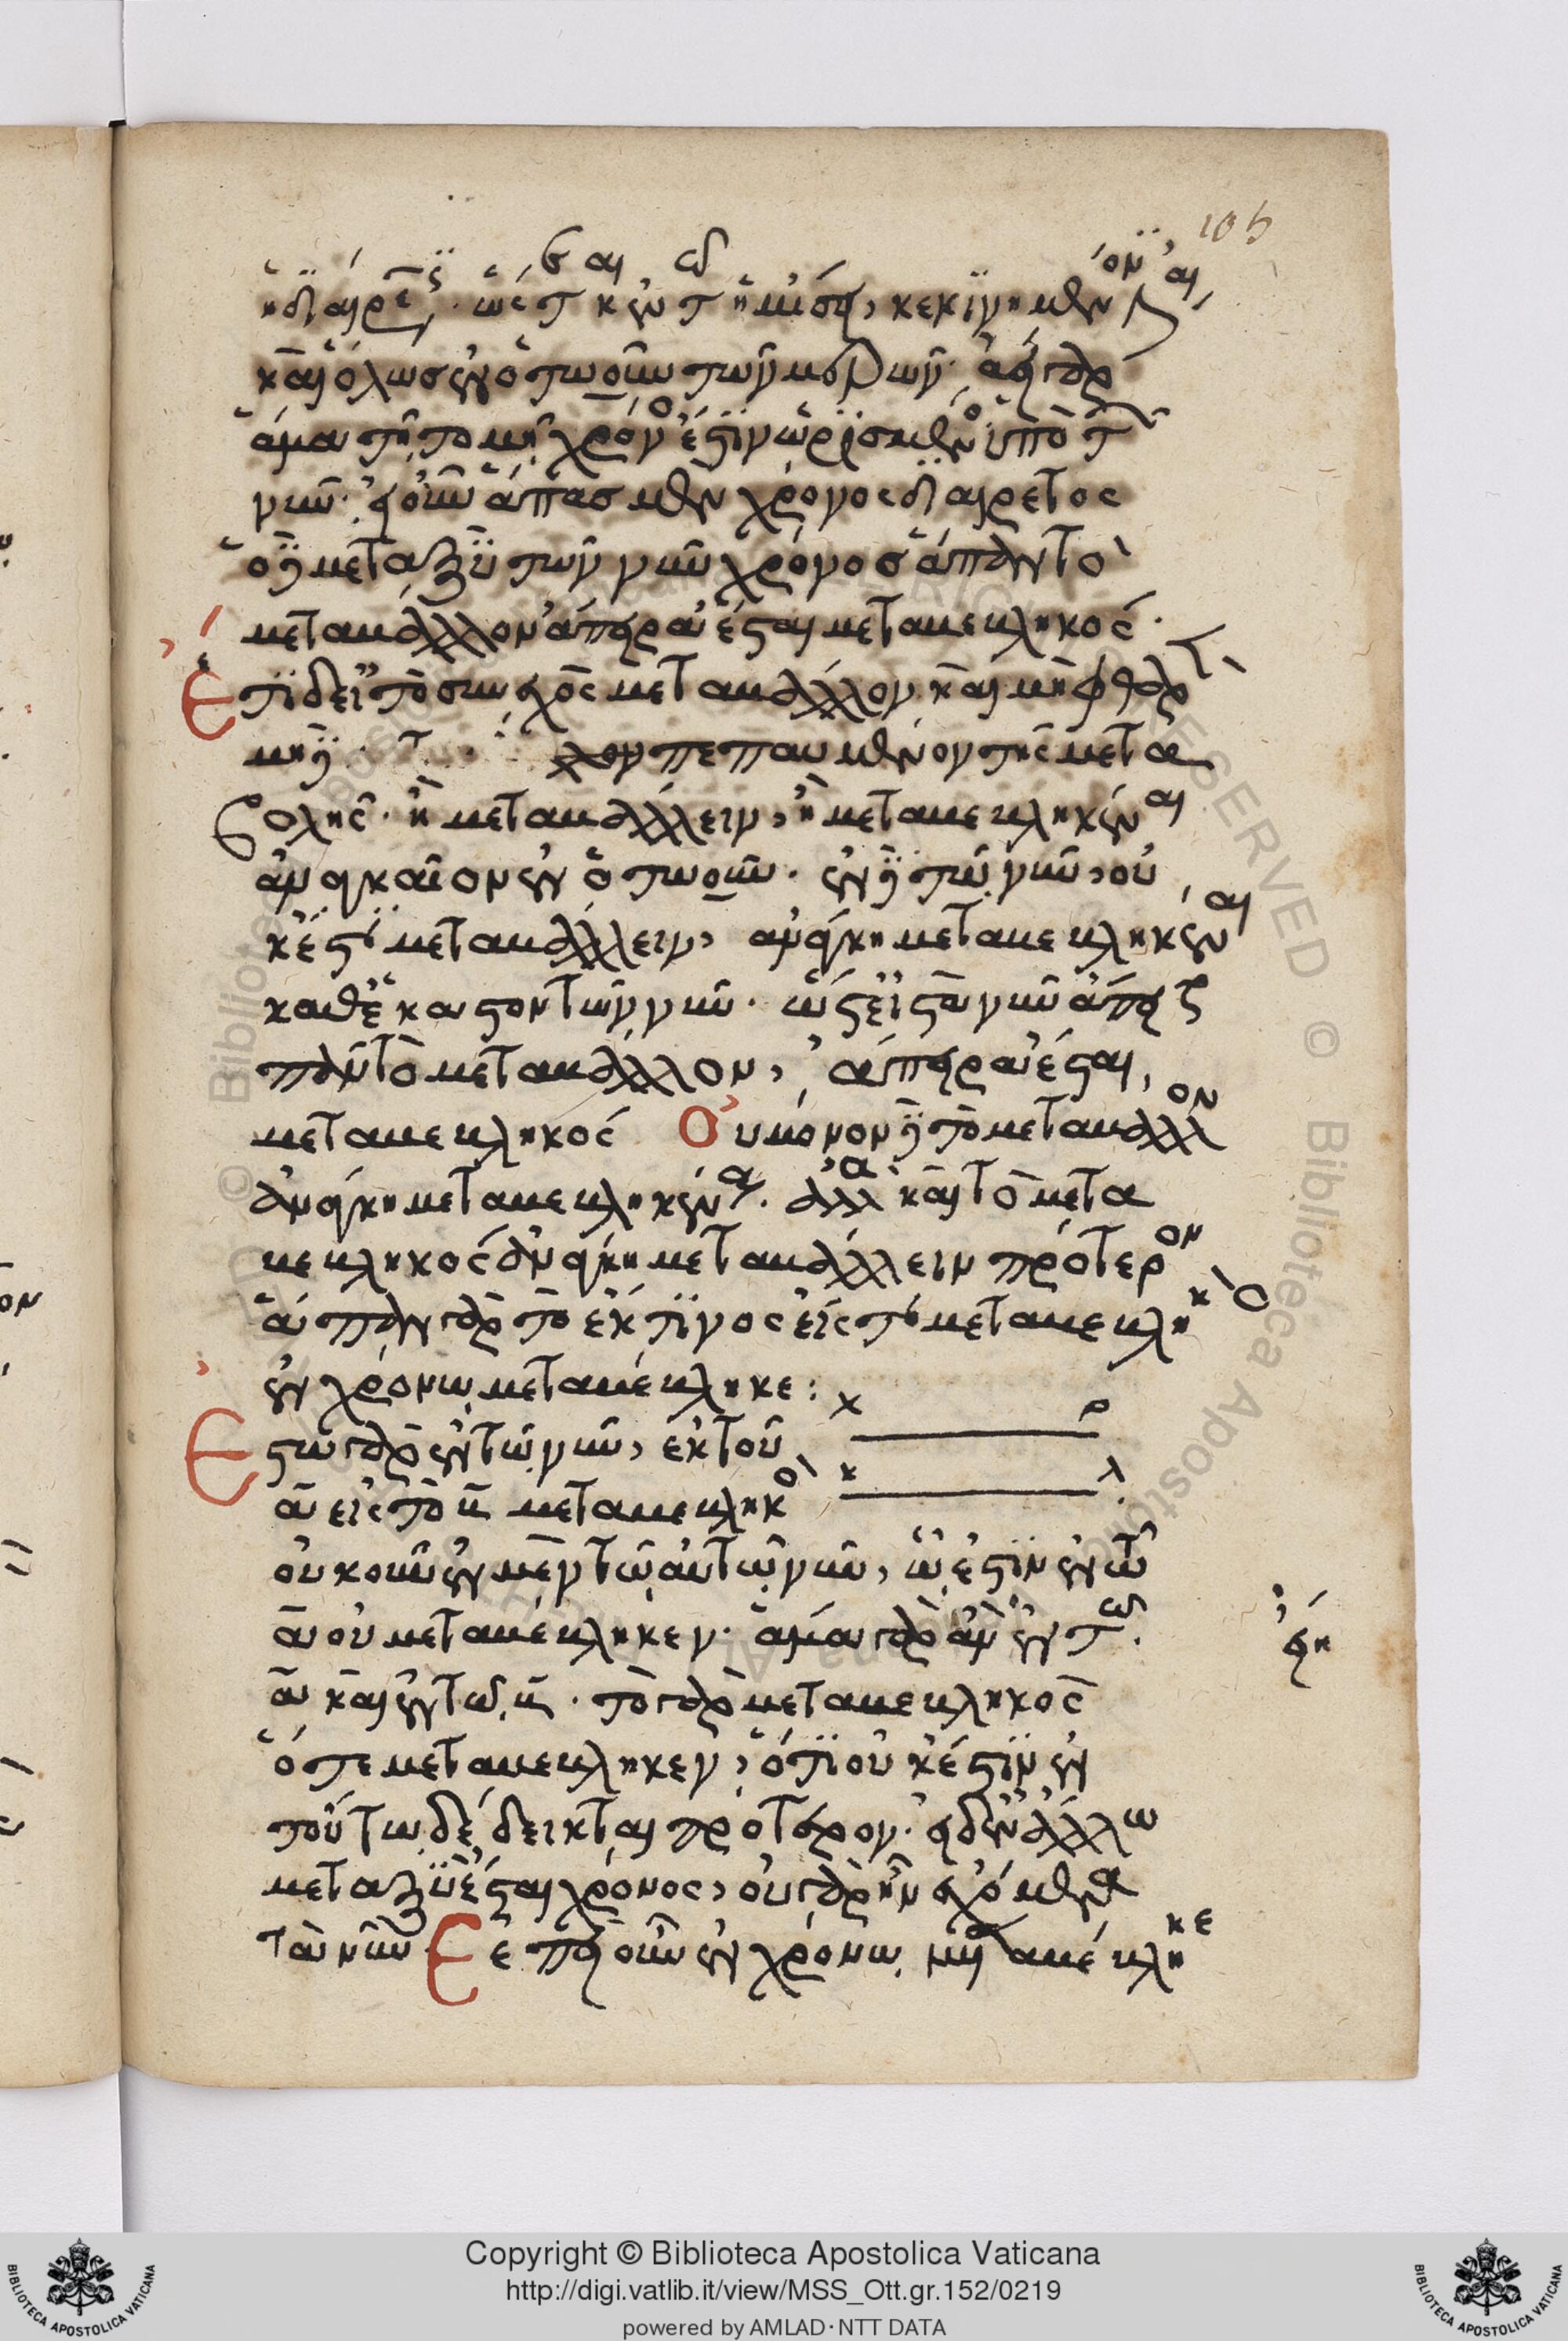 ἡ διαίρεσις· ὥστε κἂν τῇ ἡμίσει κεκινημένον ἔσται
καὶ ὅλως ἐν ὁτωοῦν τῶν μερῶν· ἀεὶ γὰρ
ἅμα τῇ τομῇ χρόνος ἐστὶν ὡρισμένος ὑπὸ τῶν
νῦν· εἰ οὖν ἅπας μὲν χρόνος διαιρετὸς
ὁ δὲ μεταξὺ τῶν νῦν χρόνος ἅπαν τὸ
μεταβάλλον ἄπειρα ἔσται μεταβεβληκός·
Ἔτι δεῖ τὸ συνεχῶς μεταβάλλον καὶ μὴ φθαρὲν
μηδὲ πεπαυμένον τῆς μετα
βολῆς· ἢ μεταβάλλειν, ἢ μεταβεβληκέναι
ἀναγκαῖον ἐν ὁτωοῦν· ἐν δὲ τῷ νῦν, οὐ
κέστι μεταβάλλειν, ἀνάγκη μεταβεβληκέναι
καθέκαστον τῶν νῦν· ὥστ εἰ τὰ νῦν ἄπειρα
πᾶν τὸ μεταβάλλον, ἄπειρα ἔσται
μεταβεβληκός Οὐ μόνον δὲ τὸ μεταβάλλον
ἀνάγκη μεταβεβληκέναι· ἀλλὰ καὶ τὸ μετα
βεβληκὸς ἀνάγκη μεταβάλλειν πρότερον
ἅπαν γὰρ τὸ ἐκ τινος εἴς τι μεταβεβληκὸς
ἐν χρόνῳ μεταβέβληκε:
Ἔστω γὰρ ἐν τῷ νῦν, ἐκ τοῦ
α εἰς τὸ β μεταβεβληκὸς
οὐκοῦν ἐν μὲν τῷ αὐτῷ νῦν, ὧ ἐστὶν ἐν τῶ
α οὐ μεταβέβληκεν· ἅμα γὰρ ἂν ἐν τῶ
α καὶ ἐν τῷ β· τὸ γὰρ μεταβεβληκὸς
ὅτε μεταβέβληκεν, ὅτι οὐκ ἔστιν ἐν
τούτω δέδεικται πρότερον· εἰ δ ἐν ἄλλω
μεταξὺ ἔσται χρόνος, οὐ γὰρ ἦν ἐχόμενα
τὰ νῦν Ἐπεὶ οὖν ἐν χρόνῳ μεταβέβληκε
εἴη
105
Copyright © Biblioteca Apostolica Vaticana
http://digi.vatlib.it/view/MSS_Ott.gr.152/0219
powered by AMLAD·NTT DATA